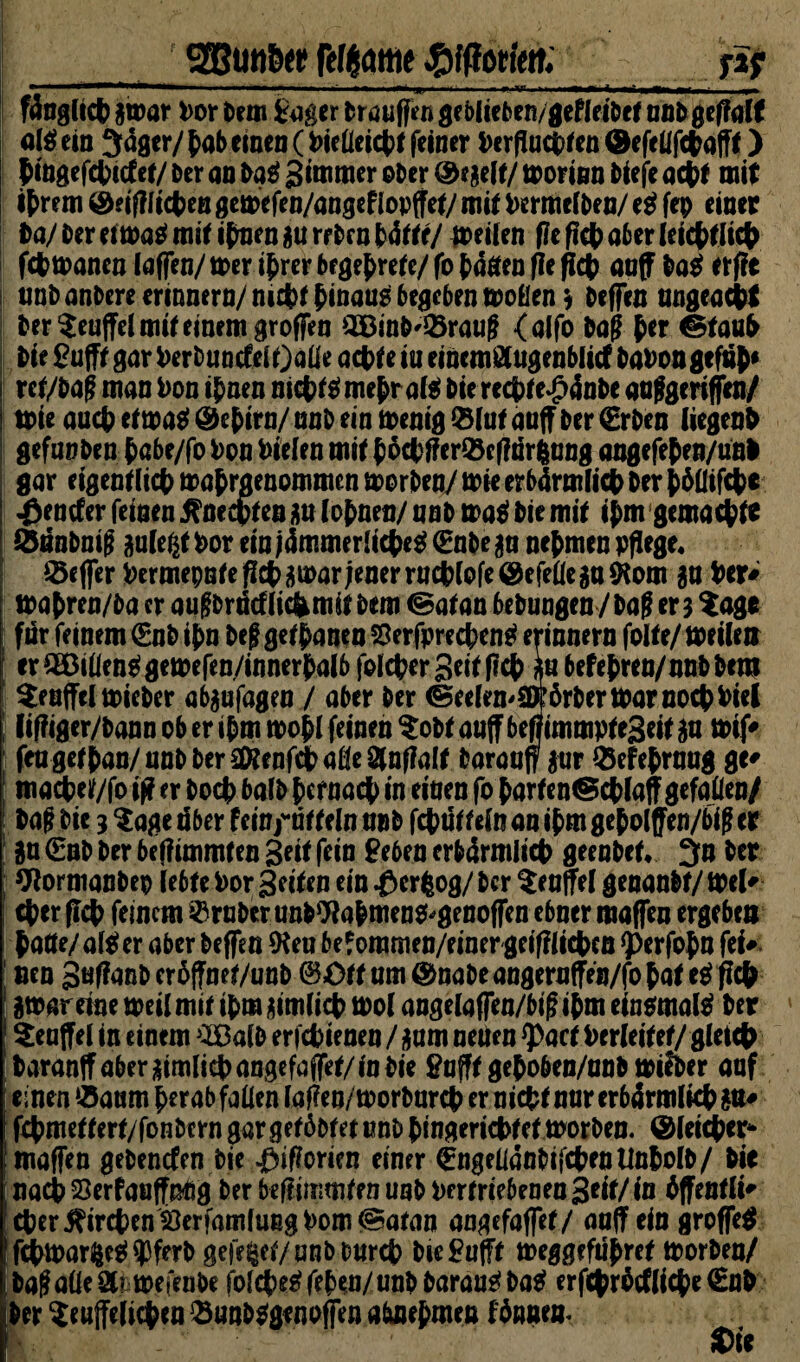 Wunder seltzame Historien. 525
fänglich zwar vor dem Lager draussen geblieben/gekleidet und gestalt
als ein Jäger/ hab einen (vielleicht seiner verfluchten Gesellschafft)
hingeschicket/ der an das Zimmer oder Gezelt/ worinn diese acht mit
ihrem Geistlichen gewesen/angeklopffet/ mit vermelden/ es sey einer
da/ der etwas mit ihnen zu reden hätte/ weilen sie sich aber leichtlich
schwanen lassen/ wer ihrer begehrete/ so hätten sie sich auff das erste
und andere erinnern/ nicht hinaus begeben wollen; dessen ungeacht
der Teuffel mit einem grossen Wind-Brauß (also daß her Staub
die Lufft gar verdunckelt) alle achte iu einem Augenblick davon gefüh-
ret/daß man von ihnen nichts mehr als die rechte-Hände außgerissen/
wie auch etwas Gehirn/ und ein wenig Blut auff der Erden liegend
gefunden habe/so von vielen mit höchster Bestürtzung angesehen/und
gar eigentlich wahrgenommen worden/ wie erbärmlich der höllische
Hencker seinen Knechten zu lohnen/ und was die mit ihm gemachte
Bündniß zuletzt vor ein jämmerliches Ende zu nehmen pflege.
Besser vermeynte sich zwar jener ruchlose Geselle zu Rom zu ver-
wahren/da er außdrücklich mit dem Satan bedungen / daß er 3 Tage
für seinem End ihn deß gethanen Versprechens erinnern solte/ weilen
er Willens gewesen/innerhalb solcher Zeit sich zu bekehren/und dem
Teuffel wieder abzusagen / aber der Seelen-Mörder war noch viel
listiger/dann ob er ihm wohl seinen Todt auff bestimmpte Zeit zu wis-
sen gethan/ und der Mensch alle Anstalt darauff zur Bekehrnug ge-
machet/so ist er doch bald hernach in einen so harten Schlaff gefallen/
daß die 3 Tage über kein rütteln und schütteln an ihm geholffen/biß er
zu End der bestimmten Zeit sein Leben erbärmlich geendet. In der
Normandey lebte vor Zeiten ein Hertzog/ der Teuffel genandt/ wel-
cher sich seinem Bruder und Nahmens-genossen ebner massen ergeben
hatte/ als er aber dessen Reu bekommen/einer geistlichen Persohn sei-
nen Zustand eröffnet/und GOtt um Gnade angeruffen/so hat es sich
zwar eine weil mit ihm zimlich wol angelassen/biß ihm einsmals der
Teuffel in einem Wald erschienen / zum neuen Pact verleitet/ gleich
daranff aber zimlich angefasset/ in die Lufft gehoben/und wieder auf
einen Baum herab fallen lassen/wordurch er nicht nur erbärmlich zu-
schmettert/sondern gar getödtet und hingerichtet worden. Gleicher-
massen gedencken die Historien einer Engelländischen Unhold/ die
nach Verkauffung der bestimmten und vertriebenen Zeit/ in öffentli-
cher Kirchen Versamlung vom Satan angefasset/ auff ein grosses
schwartzes Pferd gesetzet/ und durch die Lufft weggeführet worden/
daß alle Anwesende solches sehen/ und daraus das erschröckliche End
der Teuffelichen Bundsgenossen abnehmen können.
Die